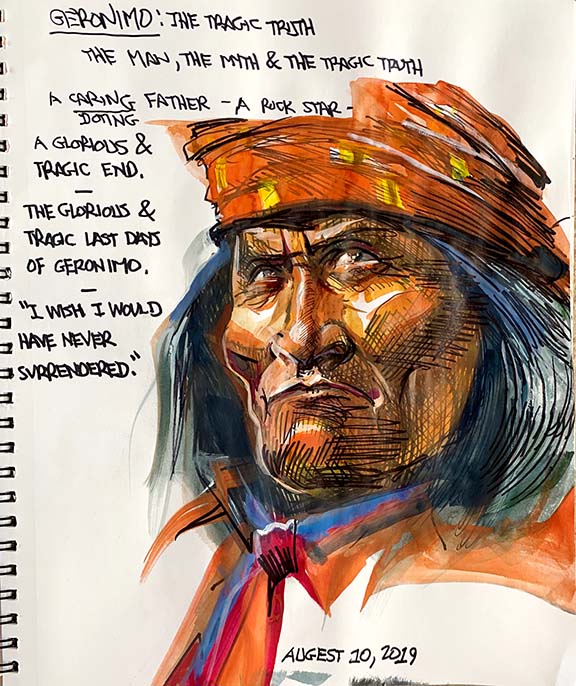 GERONIMO: THE TRAGIC TRUTH
THE MAN, THE MYTH & THE TRAGIC TRUTH
A CARING FATHER - A ROCK STAR -
DOTING
A GLORIOUS &
TRAGIC END.
—
THE GLORIOUS &
TRAGIC LAST DAYS
OF GERONIMO.
—
"I WISH I WOULD
HAVE NEVER
SURRENDERED."
AUGEST 10, 2019